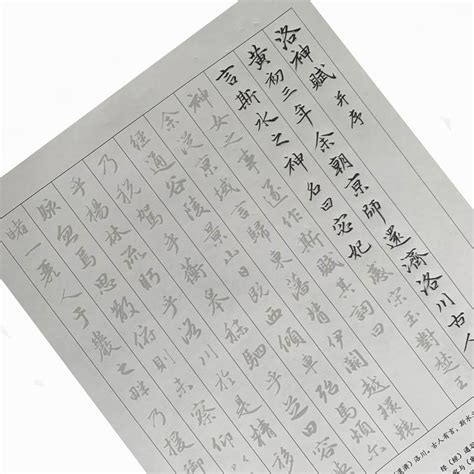 洛神賦 并序
黄初三年余朝京師還濟洛川古人
言斯水之神名曰宓妃感宋玉對楚王
神女之事遂作斯賦其詞曰
余從京域言歸東藩背伊闕越轘轅
經通谷陵景山日既西傾車殆馬煩
乃税駕乎蘅皋秣駟乎芝
乎楊林流眄乎洛川於是精移
駭忽焉思散俯則未察仰
睹一麗人于巖之畔乃援
洛川。古人有言，斯水